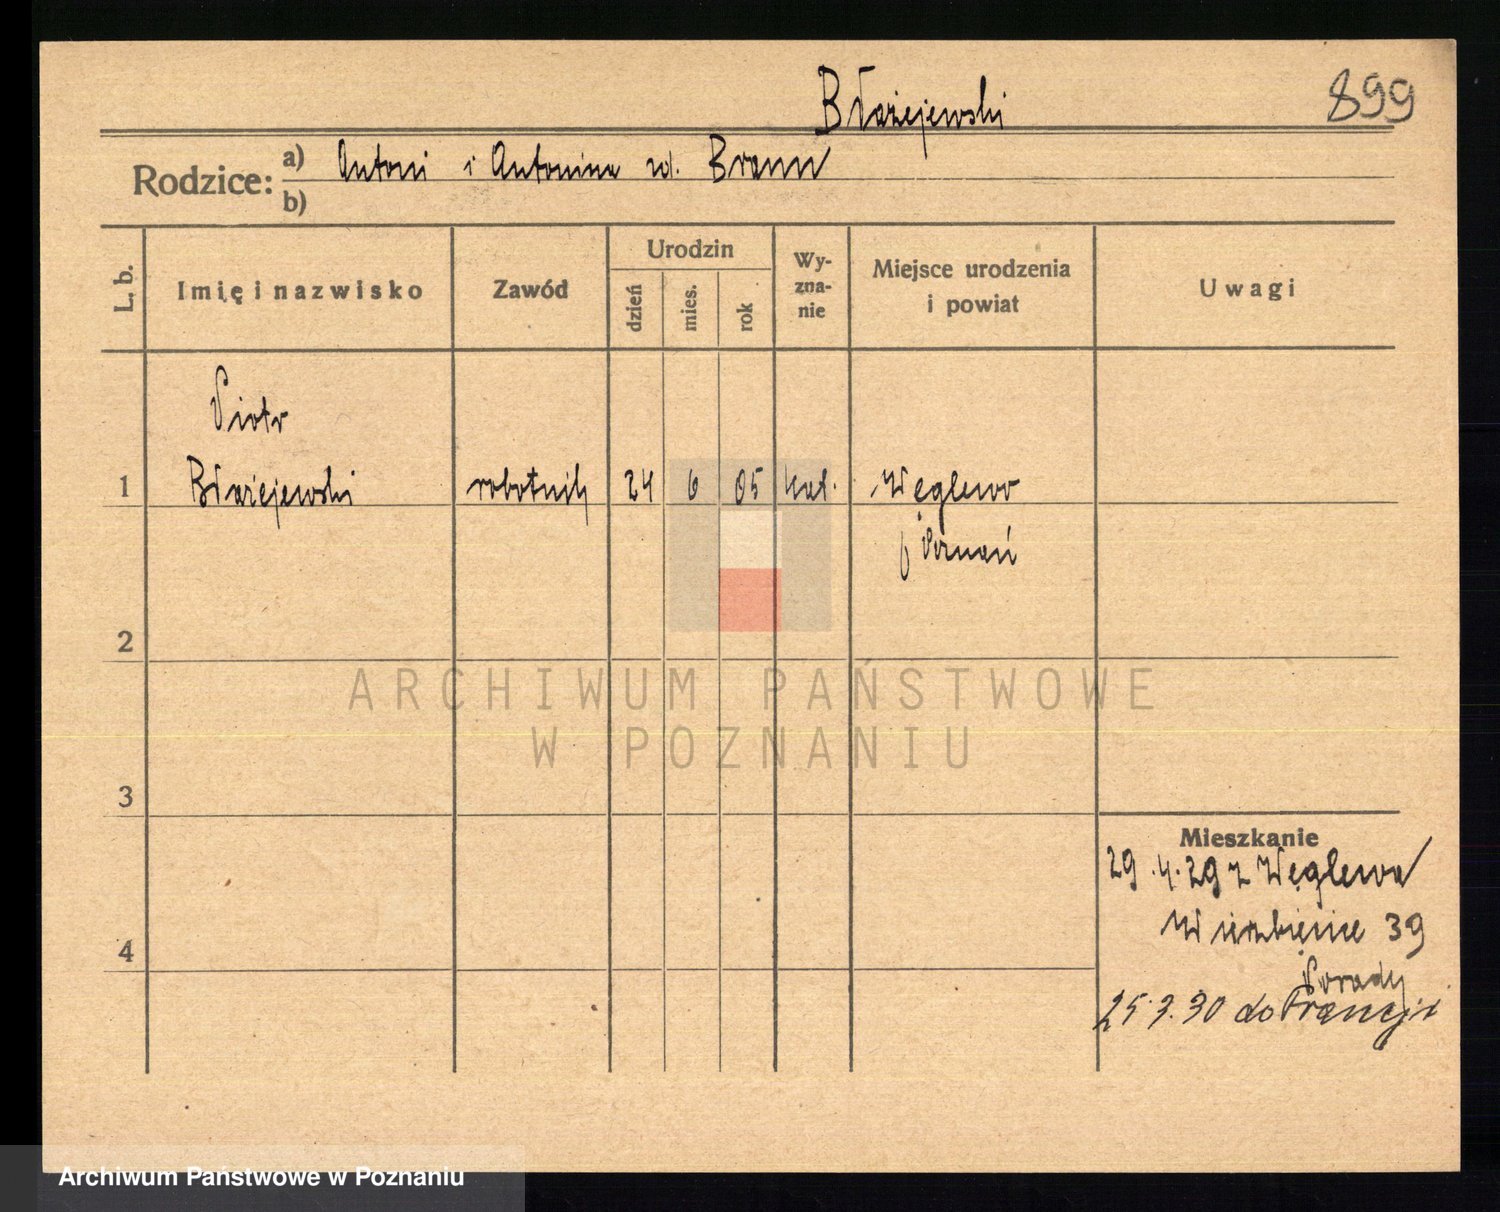 Błażejewski
899
Rodzice:
a) Antoni i Antonina zd. Brann
b)
L. b.
Imię i nazwisko
Zawód
Urodzin
dzień
mies.
rok
Wy-
zna-
nie
Miejsce urodzenia
i powiat
Uwagi
Piotr
1 Błażejewski robotnik 24 6 05 kat. Węglewo
p Poznań
2
ARCHIWUM PAŃSTWOWE
W POZNANIU
3
Mieszkanie
29.4.29 z Węglewa
Wierzbięcice 39
4
25.3.30 do Francji
Archiwum Państwowe w Poznaniu